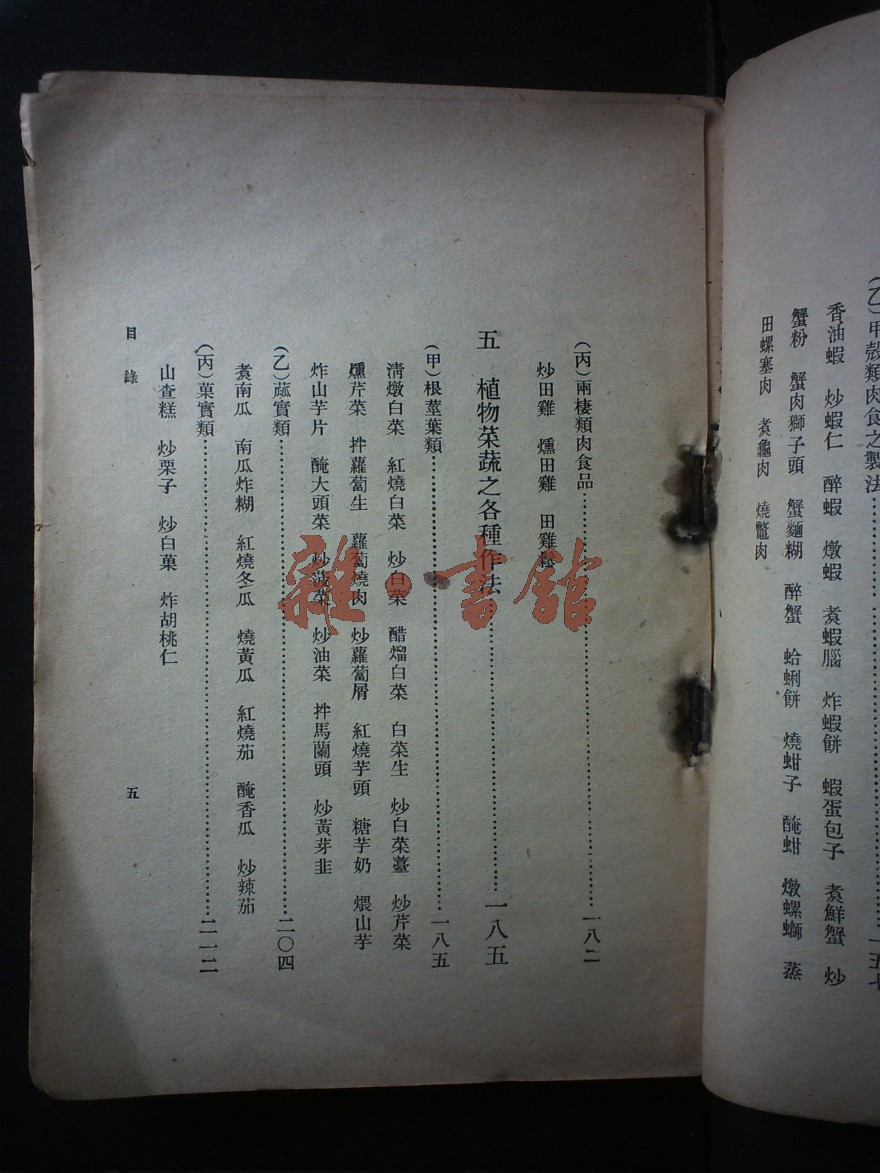 (乙)甲殼類肉食之製法…………一五七
香油蝦 炒蝦仁 醉蝦 燉蝦 煑蝦腦 炸蝦餅 蝦蛋包子 煑鮮蟹 炒
蟹粉 蟹肉獅子頭 蟹麵糊 醉蟹 蛤蜊餅 燒蚶子 醃蚶 燉螺螄 蒸
田螺塞肉 煑龜肉 燒鼈肉
(丙)兩棲類肉食品…………一八二
炒田雞 燻田雞 田雞鬆
五 植物菜蔬之各種作法…………一八五
(甲)根莖葉類…………一八五
淸燉白菜 紅燒白菜 炒白菜 醋熘白菜 白菜生 炒白菜薹 炒芹菜
燻芹菜 拌蘿蔔生 蘿蔔燒肉 炒蘿蔔屑 紅燒芋頭 糖芋奶 煨山芋
炸山芋片 醃大頭菜 炒菠菜 炒油菜 拌馬蘭頭 炒黃芽韭
(乙)蓏實類…………二〇四
煑南瓜 南瓜炸糊 紅燒冬瓜 燒黃瓜 紅燒茄 醃香瓜 炒辣茄
(丙)菓實類…………二一二
山查糕 炒栗子 炒白菓 炸胡桃仁
目錄
五
雜·書館